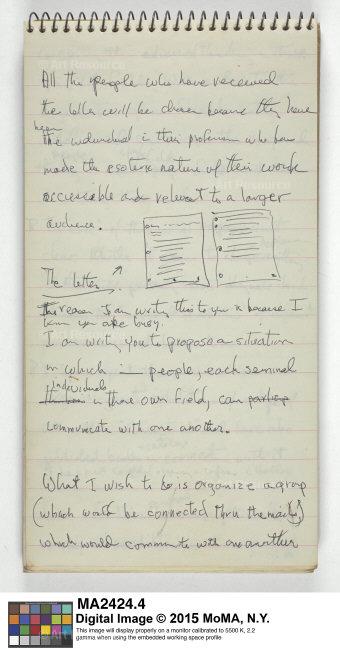 All the people who have received
the letter will be chosen because they have
been
the individual in their profession who have
made the esoteric nature of their work
accessable and relevant to a larger
audience.
The letter
The reason I am writing this to you is because I
know you are busy.
I am writing you to propose a situation
in which people, each seminal
individuals
in thare own field, can
communicate with one another.
What I wish to do is organize a group
(which would be connected thru the mail)
which would communicate with one another
Art Resource
MA2424.4
Digital Image © 2015 MoMA, N.Y.
This image will display properly on a monitor calibrated to 5500 K, 2.2
gamma when using the embedded working space profile